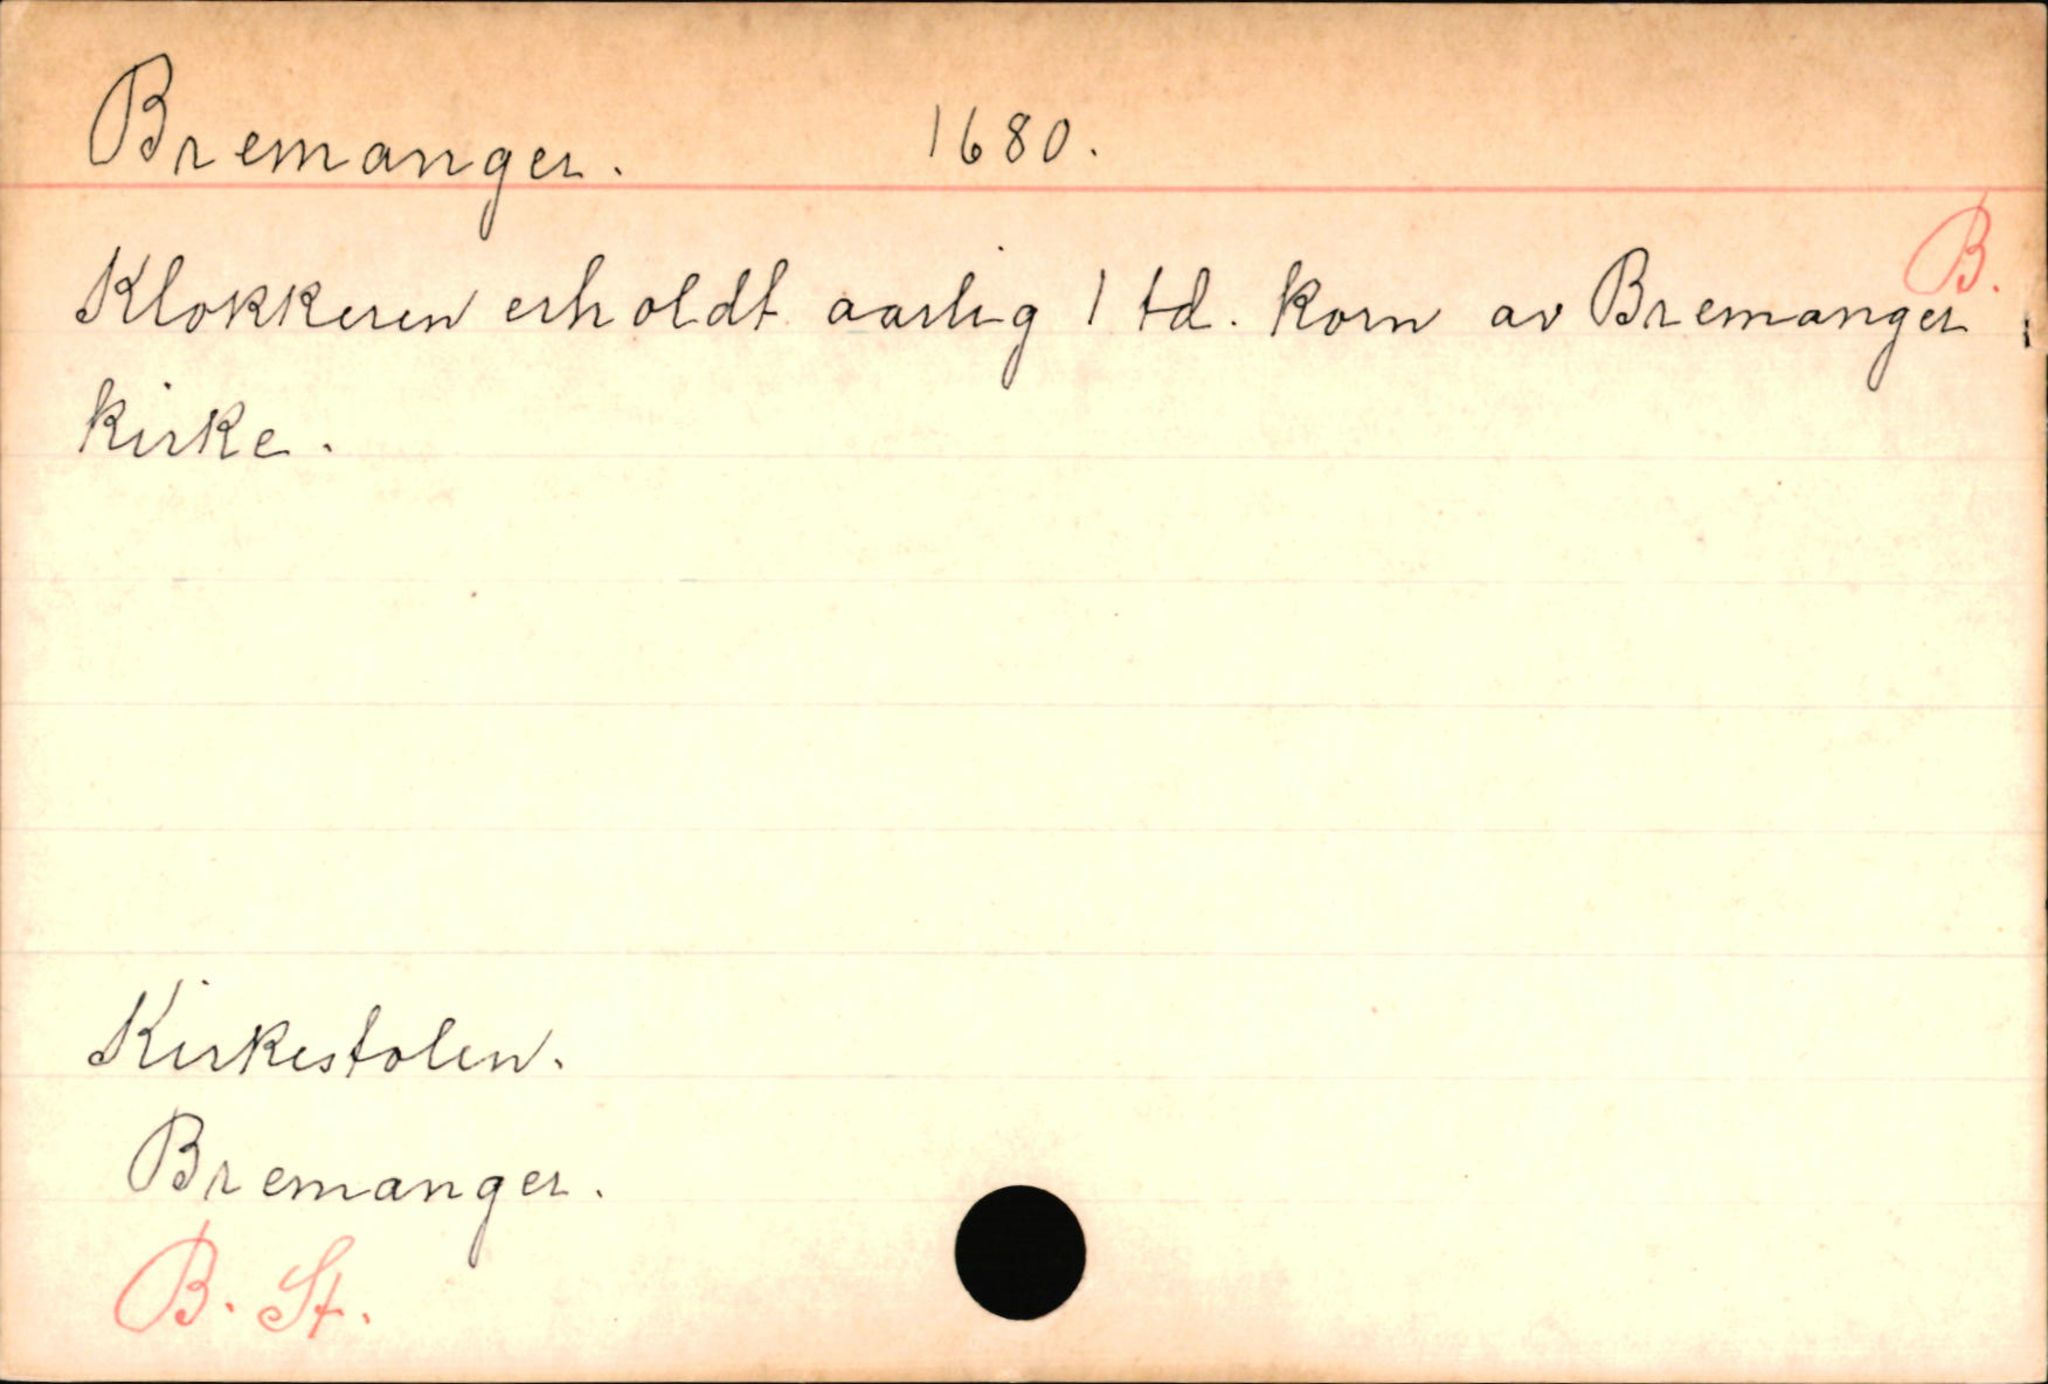 Bremanger. 1680.
B.
Klokkeren erholdt aarlig 1 td. korn av Bremanger
kirke.
Kirkestolen.
Bremanger.
B. St.